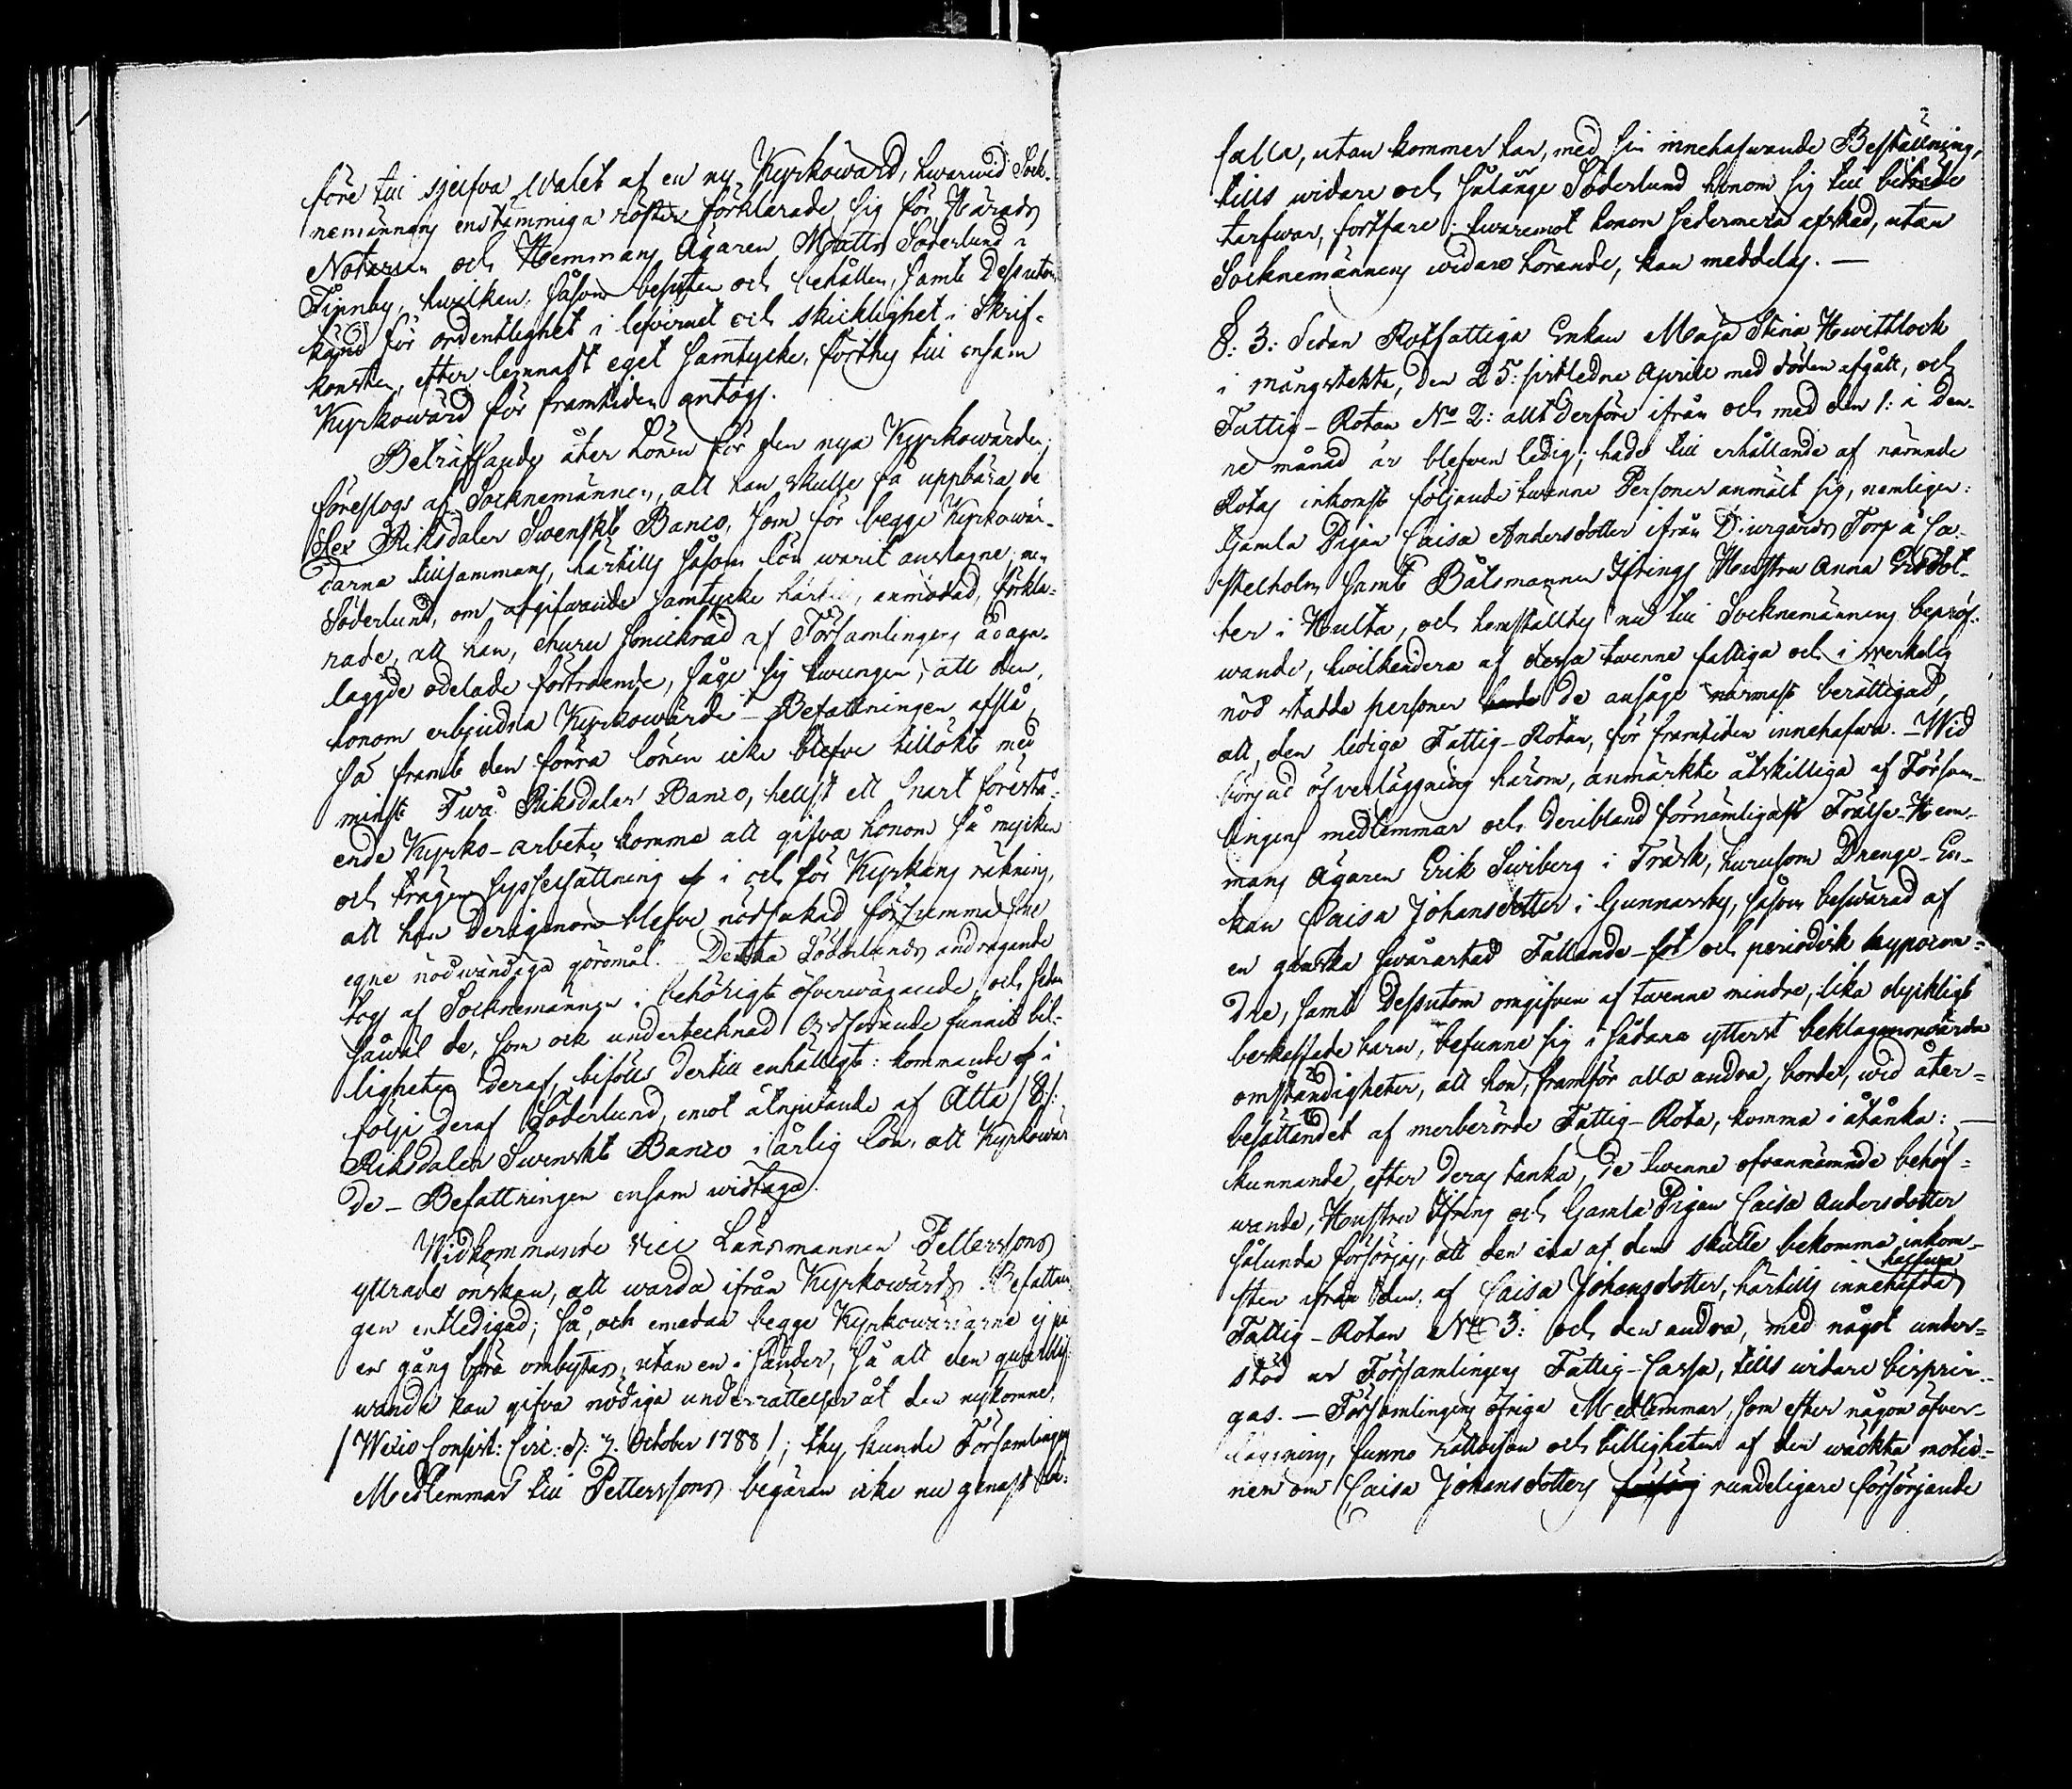 före till sjelfva Walet af en ny Kyrkowärd, hwarwid Sock-
nemännens enstämmiga röster förklarade sig för Härads
Notarien och Hemmans Ägaren Matts Söderlund i
Finnby, hwilken, såsom besuten och behållen, samt dessutom
känd för ordentlighet i lefvernet och skicklighet i Skrif-
konsten, efter lemnadt eget samtycke, förthy till ensam
Kyrkowärd för framtiden antogs.
Beträffande åter Lönen för den nya Kyrkowärden;
föreslogs af Socknemännen, att han skulle få uppbära de
Sex Riksdaler Swenskt Banco, som för begge Kyrkowär-
darna tillsammans, härtills såsom lön warit anslagne; men
Söderlund, om afgifwande samtycke härtill, anmodad, förkla-
rade, att han, ehuru smickrad af Församlingens ådaga-
laggde odelade förtroende, såge sig twungen, att den,
honom erbjudna Kyrkowärds-Befattningen afslå,
så framt den förra lönen icke blefve tillökt med
minst Twå Riksdaler Banco, helst ett snart förestå-
ende Kyrko-arbete komme att gifva honom så mycken
och trägen sysselsättning i och för Kyrkans räkning,
att han derigenom blefve nödsakad försumma sine
egne nödwändiga göromål. Detta Söderlunds andragande
togs af Socknemännen i behörigt öfverwägande, och sedan
såwäl de, som ock undertecknad Ordförande funnit bil-
ligheten deraf, bifölls dertill enhälligt: kommande i
följe deraf Söderlund, emot åtnjutande af Åtta /8/:
Riksdaler Swenskt Banco i årlig lön, att Kyrkowär-
ds-Befattningen ensam widtaga.
Widkommande vice Länsmannen Petterssons
yttrade önskan, att warda ifrån Kyrkowärds-Befattnin-
gen entledigad; så, och emedan begge Kyrkowärdarne ej på
en gång böra ombytas, utan en i sänder, så att den quarblif-
wande kan gifva nödiga underrättelser åt den nykomne,
/Wexio Consist: Circ: d: 7. October 1788/; thy kunde Församlingens
Medlemmar till Petterssons begäran icke nu genast bi-
falla, utan kommer han, med sin innehafwande Beställning,
tills widare och sålänge Söderlund honom sig till biträde
tarfwar, fortfare: hwaremot honom sedermera afsked, utan
Socknemännens widare hörande, kan meddelas. —
§: 3: Sedan Rotfattiga Enkan Maja Stina Hwitblock
i Mångstekta, den 25: sistledne Aprill med döden afgått, och
Fattig-Rotan No 2: allt derföre ifrån och med den 1: i den-
ne månad är blefven ledig; hade till erhållande af nämnde
Rotas inkomst följande twenne Personer anmält sig, nemligen:
Gamla Pigan Caisa Andersdotter ifrån Diurgårds Torp å Ca-
stelholm samt Båtsmannen Ifrings Hustru Anna Ersdot-
ter i Hulta, och hemställtes nu till Socknemännens bepröf-
wande, hwilkendera af dessa twenne fattiga och i werkelig
nöd stadde personer de ansåge närmast berättigad,
att den lediga Fattig-Rotan, för framtiden innehafwa. — Wid
börjad öfverläggning härom, anmärkte åtskilliga af Försam-
lingens medlemmar och deribland förnämligast Frälse-Hem-
mans Ägaren Erik Swiberg i Träsk, hurusom Drenge-En-
kan Caisa Johansdotter i Gunnarsby, såsom beswärad af
en ganska swårartad Fallande-sot och periodisk hypocon-
dre, samt dessutom omgifven af twenne mindre, lika olyckligt
beskaffade barn, befunne sig i sådane ytterst beklagansvärda
omständigheter, att hon, framför alla andra, borde, wid åter-
besättandet af merberörde Fattig-Rota, komma i åtanka: —
kunnande, efter deras tanka, de twenne ofvannämnde behöf-
wande, Hustru Ifring och Gamla Pigan Caisa Andersdotter
sålunda försörjas, att den ena af dem skulle bekomma inkom-
halfwa
sten ifrån den, af Caisa Johansdotter, härtills innehafda
Fattig-Rotan No 3: och den andra, med något under-
stöd ur Församlingens Fattig-Cassa, tills widare bisprin-
gas. — Församlingens öfriga Medlemmar, som efter någon öfver-
läggning, funno rättwisan och billigheten af den wäckta motio-
nen om Caisa Johansdotters rundeligare försörjande